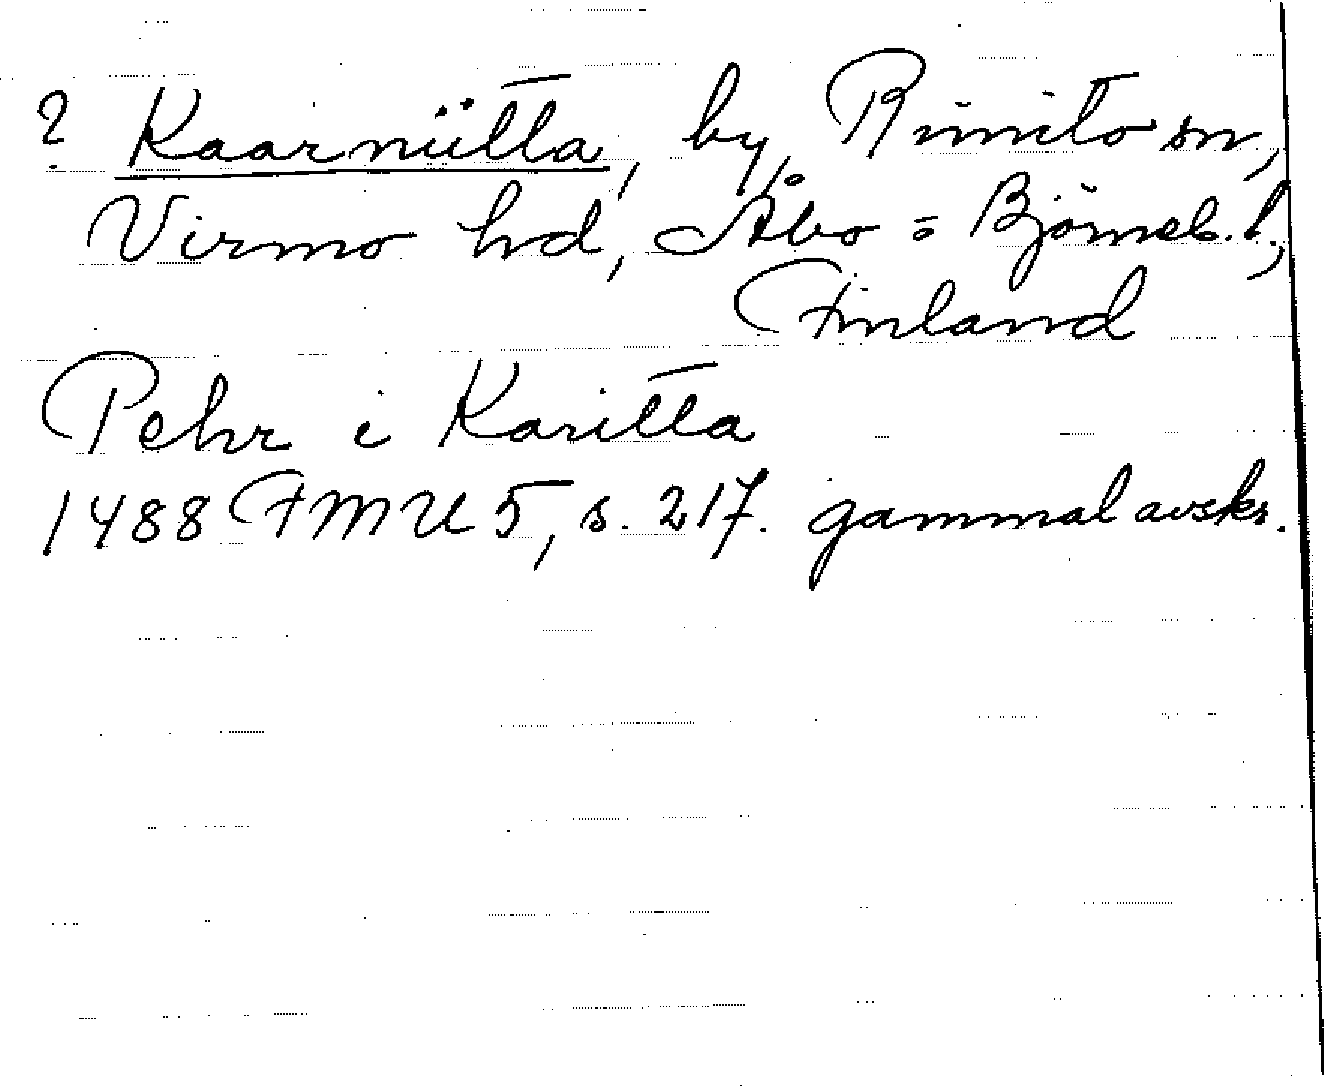 ? Kaarniitta, by, Rimito sn,
Virmo hd, Åbo = Björneb. l.,
Finland
Pehr i Karitta
1488 FMU 5, s. 217. gammal avskr.